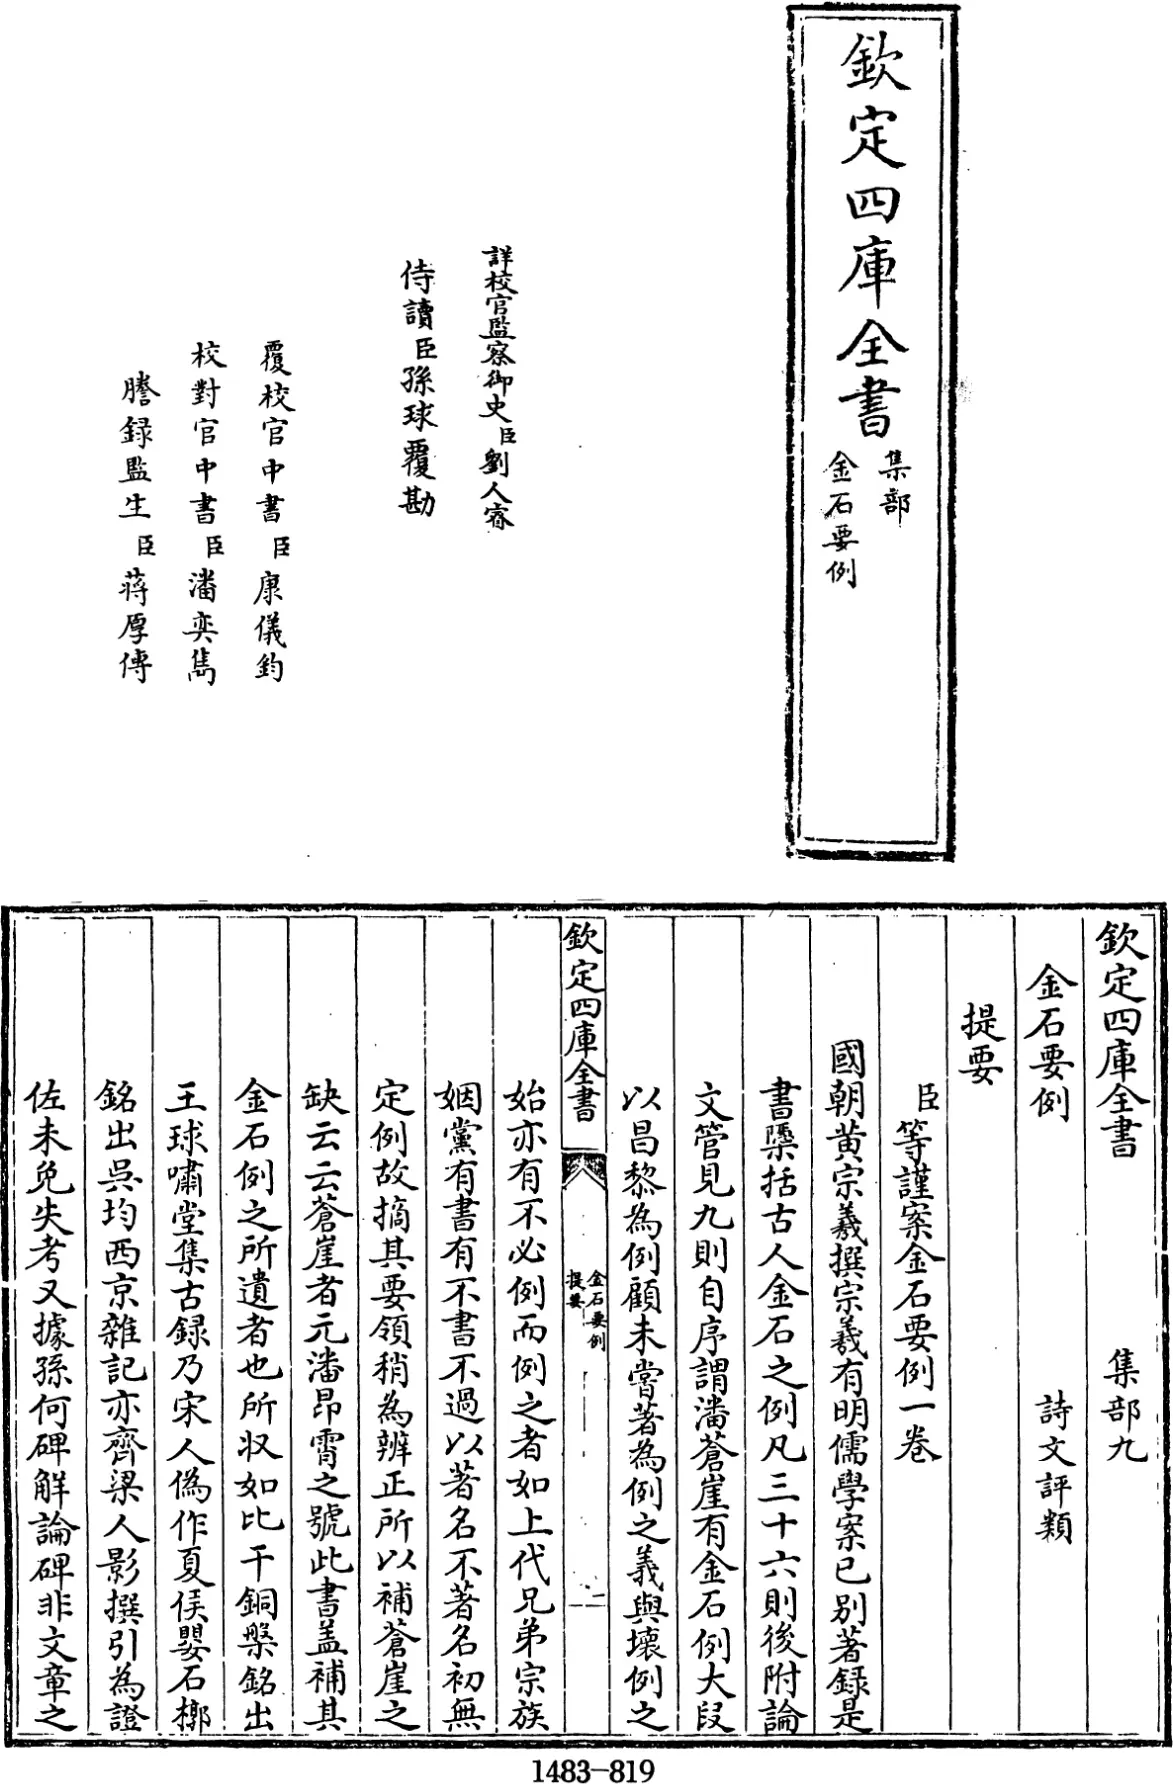 欽定四庫全書
集部
金石要例
詳校官監察御史臣劉人睿
侍讀臣孫球覆勘
覆校官中書臣康儀鈞
校對官中書臣潘奕雋
謄録監生臣蔣厚傳
欽定四庫全書 集部九
金石要例 詩文評類
提要
臣等謹案金石要例一卷
國朝黄宗羲撰宗羲有明儒學案已别著録是
書檃括古人金石之例凡三十六則後附論
文管見九則自序謂潘蒼崖有金石例大段
以昌黎為例顧未嘗著為例之義與壊例之
欽定四庫全書
金石要例
提要
一
始亦有不必例而例之者如上代兄弟宗族
姻黨有書有不書不過以著名不著名初無
定例故摘其要領稍為辨正所以補蒼崖之
缺云云蒼崖者元潘昂霄之號此書盖補其
金石例之所遺者也所収如比干銅槃銘出
王球嘯堂集古録乃宋人偽作夏侯嬰石槨
銘出吳均西京雜記亦齊梁人影撰引為證
佐未免失考又據孫何碑解論碑非文章之
1483-819